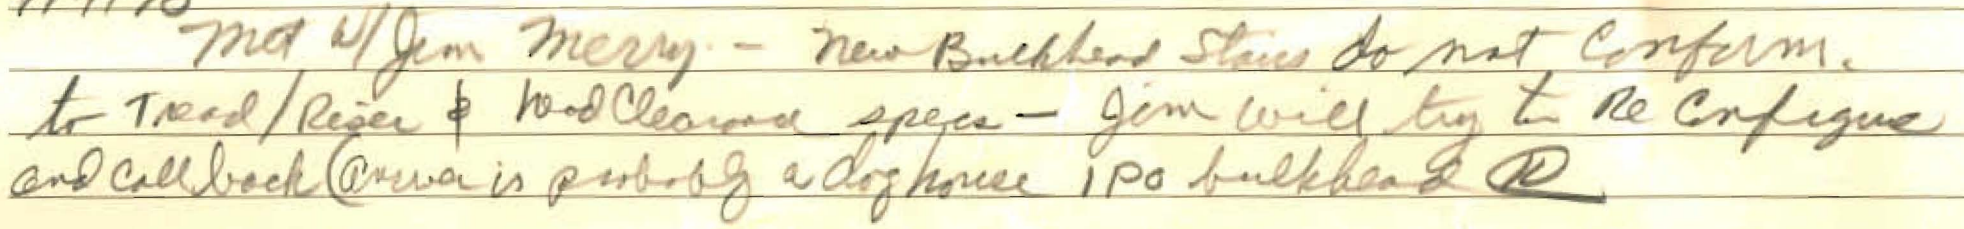 Met w/ Jim Merry - New Bulkhead Stairs do not Conform.
to Tread/Riser & Head Clearance specs - Jim will try to Re Configure
and call back (Answer is probably a doghouse IPO bulkhead